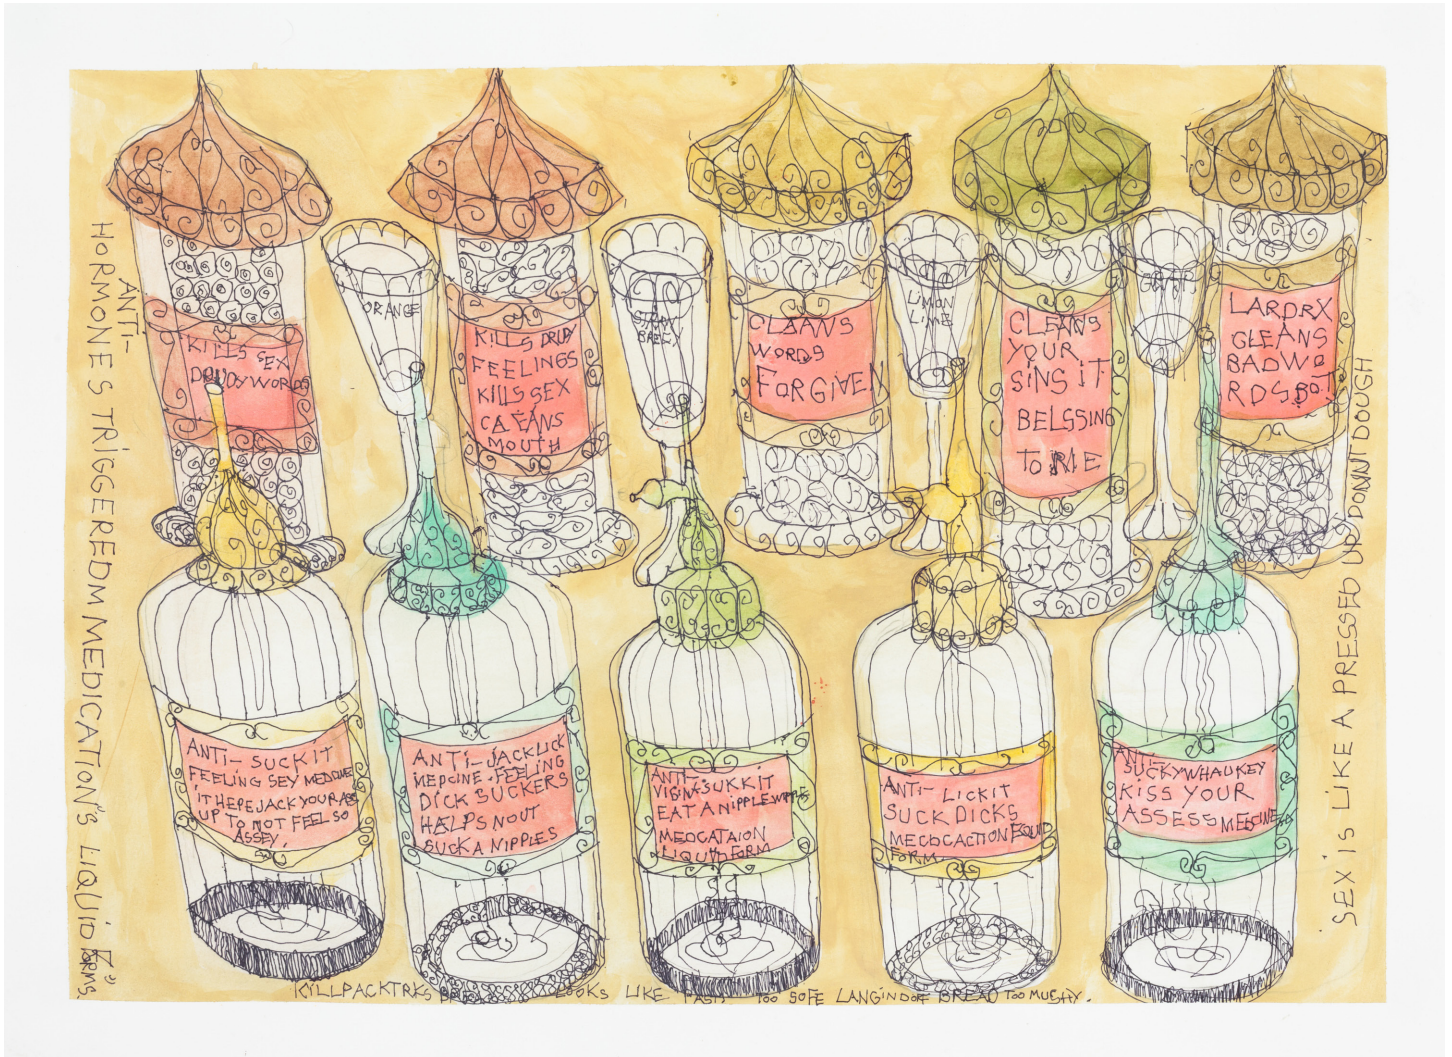 HORMONES TRIGGEREDM MEDICATION"S LIQUID FORMS.
ANTI-
KILLS SEX
WORLDS
ORANGE
KILLS DRUDY
FEELINGS
KILLS SEX
CAEANS
MOUTH
CLAANS
WORDS
FORGIVEN
LIMON
LIME
CLEANS
YOUR
SINS IT
BELSSING
TO ME
LARDRX
GLEANS
BADWO
RDS.BOT
ANTI- SUCKIT
FEELING SEY MEDCINE
IT HEPE JACK YOUR ASS
UP TO NOT FEEL SO
ASSEY.
ANTI- JACKLICK
MEDCINE-FEELING
DICK SUCKERS
HALPS NOUT
SUCKA NIPPLES
ANTI-
SUKKIT
EAT A NIPPLE
MEDCATAION
LIQUID FORM
ANTI- LICKIT
SUCK DICKS
MECOCACTION
FORM
ANTI-
SUCKYWHAUKEY
KISS YOUR
ASSESS
SEX IS LIKE A PRESSED UP DONNT DOUGH
KILLPACKTRKS
LOOKS LIKE
TOO SOFE LANGINDOF BREAD TOO MUSHY.